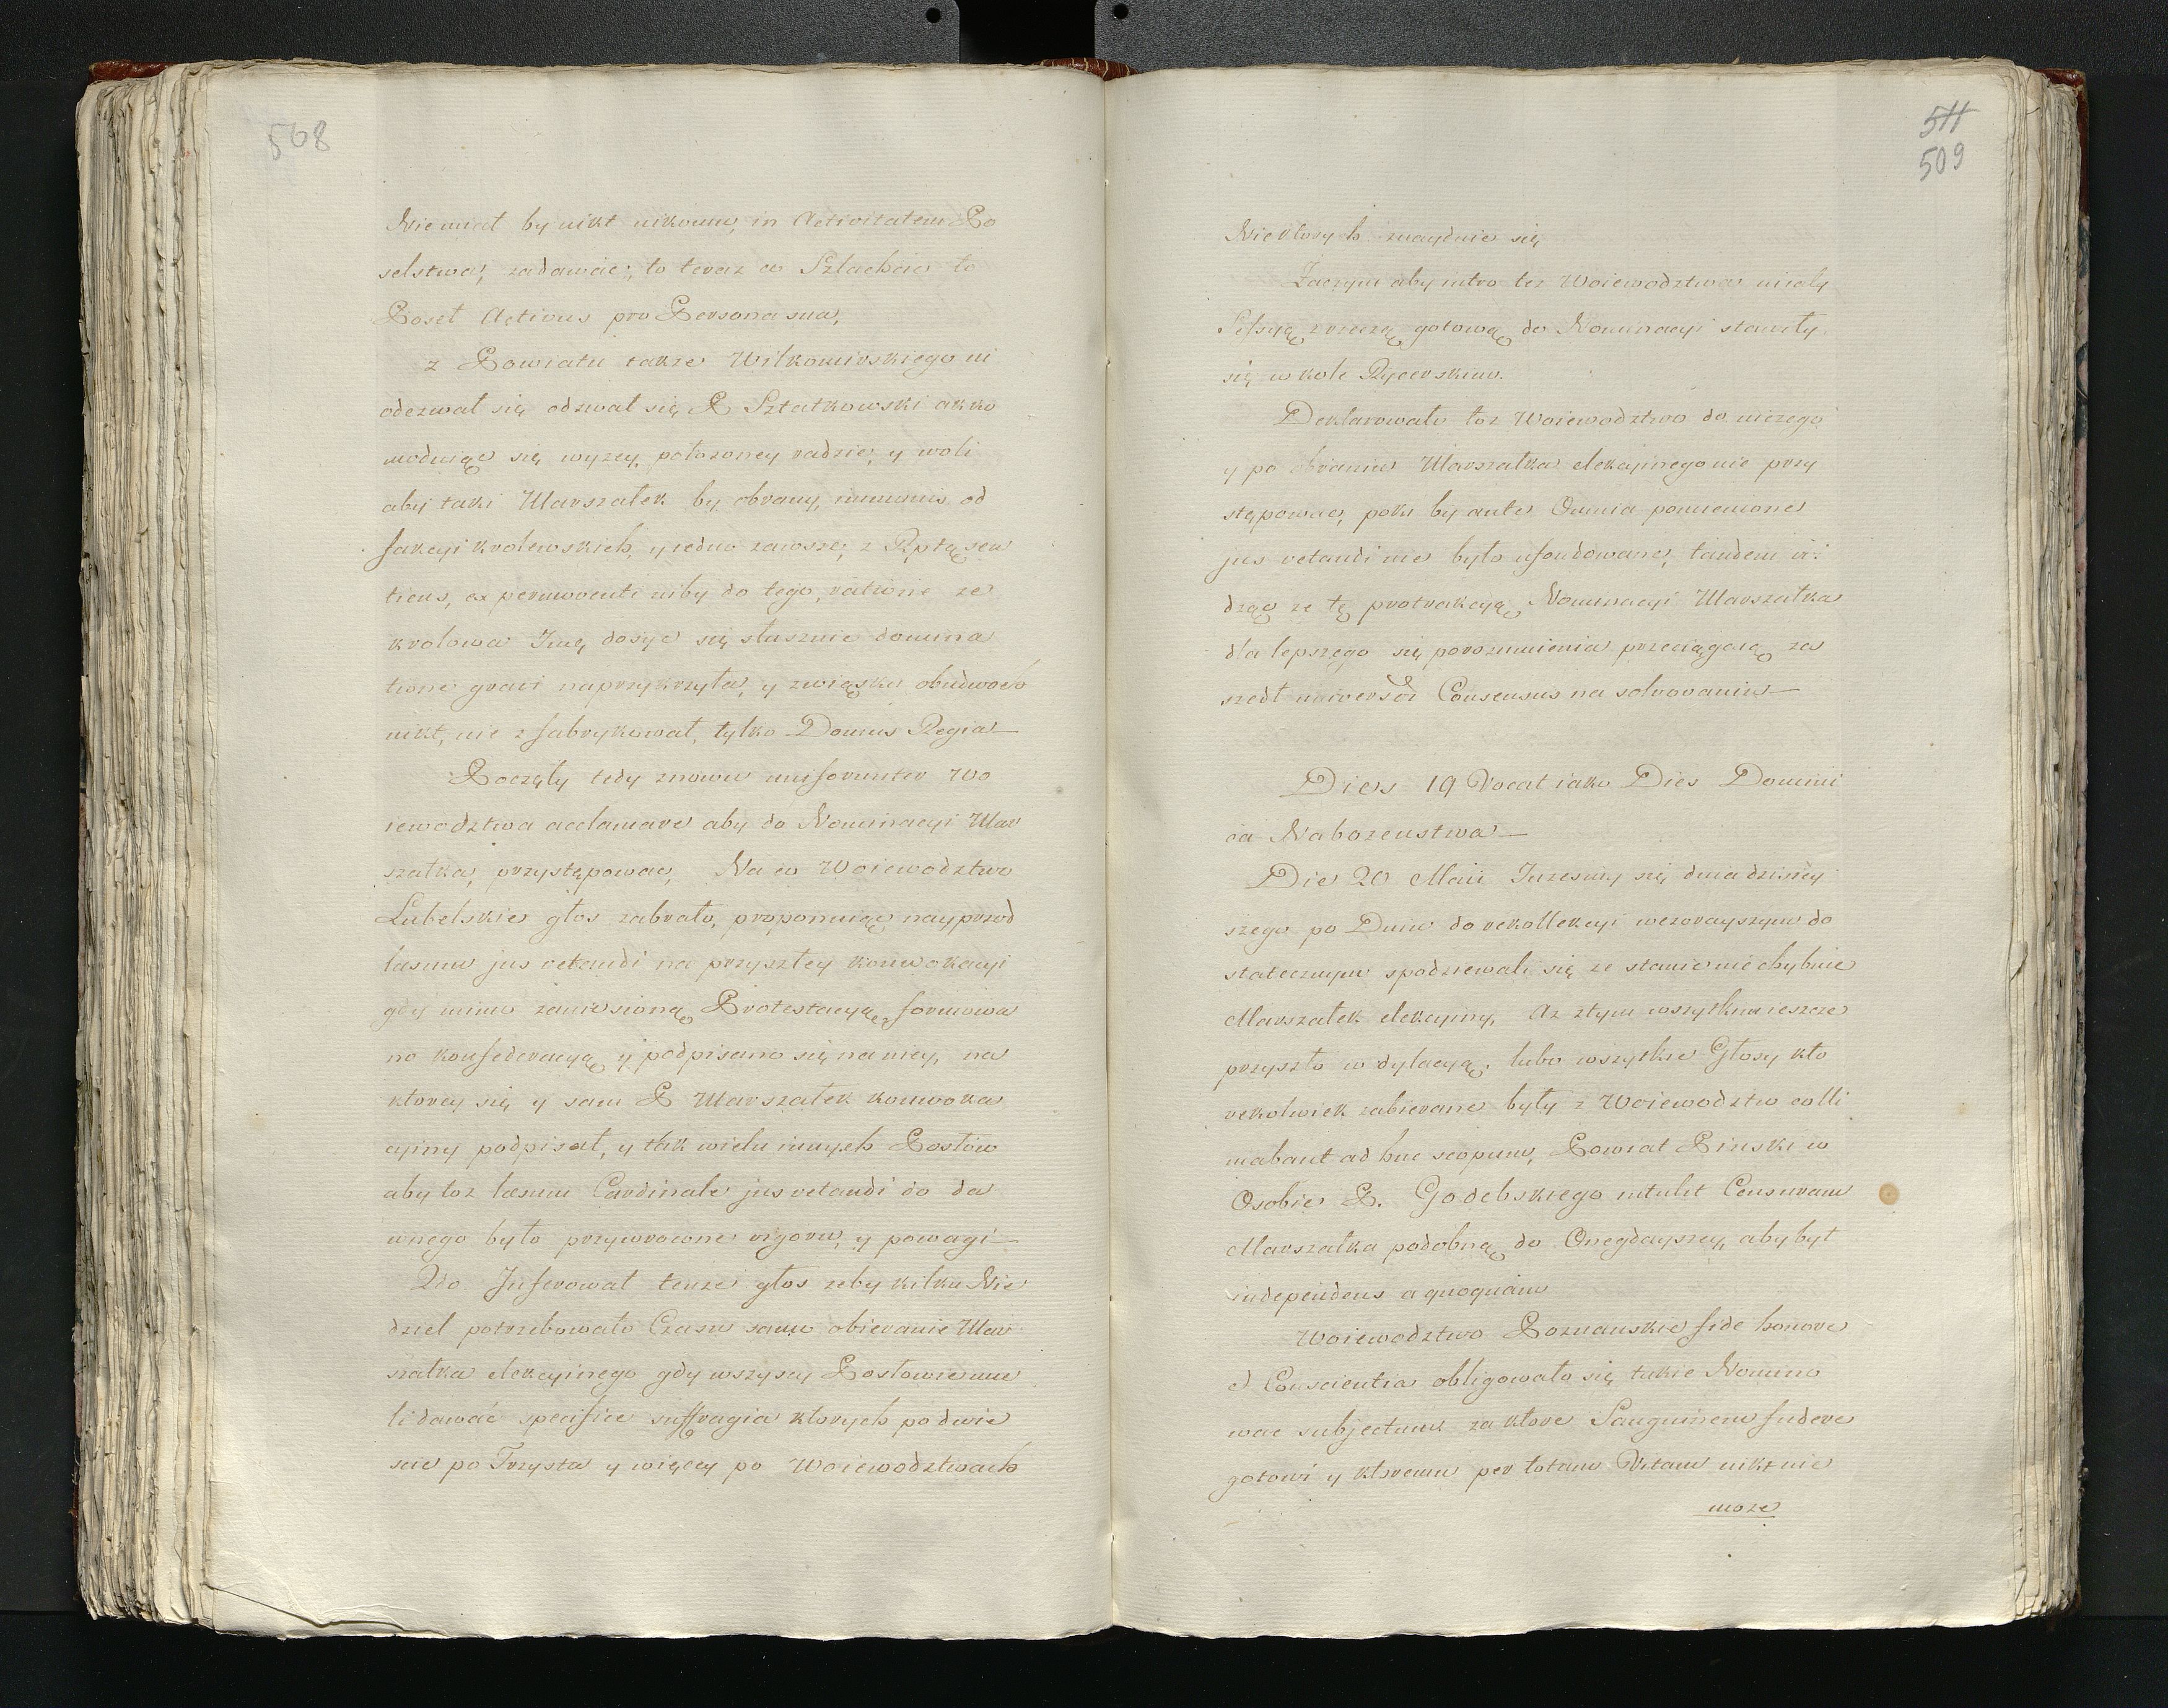 568
Nie miał by nikt nikomu, in Activitatem Po
selstwa, zadawać, to teraz co Szlachcic to
Poseł Activus pro Persona sua,
z Powiatu także Wilkomirskiego ni
odezwał się odzwał się P Sztatkowski akko
moduiąc się wyzey, położoney radzie, y woli
aby taki Marszałek by obrany, immunis od
fakcyi krolewskich, y iedno zawsze, z Rptą sen
tiens, ex permoventi niby do tego, ratione ze
krolowa Jmę dosyc się słusznie domina
tione gravi naprzykrzyła, y związku obudwoch
nikt, nie zfabrykował, tylko Domus Regia
Poczęły tedy znowu uniformiter Wo
iewodztwa acclamare aby do Nominacyi Mar
szałka, przystępować, Na co Woiewodztwo
Lubelskie głos zabrało, proponuiąc nayprzod
læsum jus vetandi na przyszłey konwokacyi
gdy mimo zaniesioną Protestacyą, formowa
no konfederacyą y podpisano się na niey, na
ktorey się y sam P Marszałek konwoka
cyiny podpisał, y tak wielu innych Posłow
aby toz læsum Cardinale jus vetandi do da
wnego było przywrocone rigoru, y powagi
2do. Inferował tenze głos zeby kilku Nie
dziel potrzebowało Czasu samo obieranie Mar
szałka elekcyinego gdy wszyscy Posłowie mie
li dawać specifice suffragia ktorych po dwie
scie po Trzysta y więcey po Woiewodztwach
511
509
Niektorych znaydzie się
Zaczym aby intro tez Woiewodztwa miały
Sessyą z rzeczą gotową do Nominacyi stawiły
się w kole Rycerskim.
Deklarowało toz Woiewodztwo do niczego
y po obraniu Marszałka elekcyinego nie przy
stępować, poki by ante Omnia pomienione
jus vetandi nie było ufondowane, tandem wi
dząc ze tę protrakcyą Nominacyi Marszałka
dla lepszego się porozumienia przeciągaią za
szedł universus Consensus na solwowaniu
Dies 19 Vocat iako Dies Domini
ca Nabozenstwa
Die 20 Maii Jużesmy się dnia dzisiey
szego po Dniu do rekollekcyi wczorayszym do
statecznym spodziewali się ze stanie nie chybnie
Marszałek elekcyiny, Az ztym wszytkim ieszcze
przyszło w dylacyą. lubo wszytkie Głosy kto
rekolwiek zabierane były z Woiewodztw colli
mabant ad hunc scopum, Powiat Pinski w
Osobie P. Godebskiego intulit Censuram
Marszałka podobną do Onegdayszey, aby był
independens a quoquam
Woiewodztwo Poznanskie fide honore
et Conscientia obligowało się takie Nomino
wac subjectum za ktore Sanguinem fudere
gotowi y ktoremu per totam Vitam nikt nie
moze